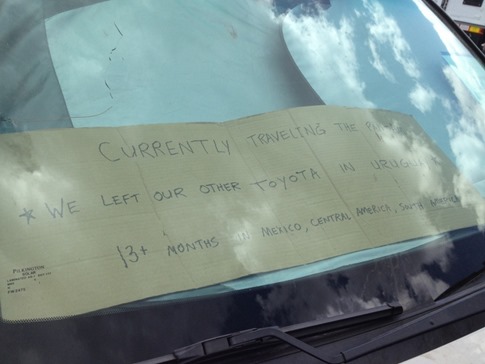 CURRENTLY TRAVELING THE
* WE LEFT OUR OTHER TOYOTA IN URUGUAY
13+ MONTHS IN MEXICO, CENTRAL AMERICA, SOUTH AMERICA
PILKINGTON